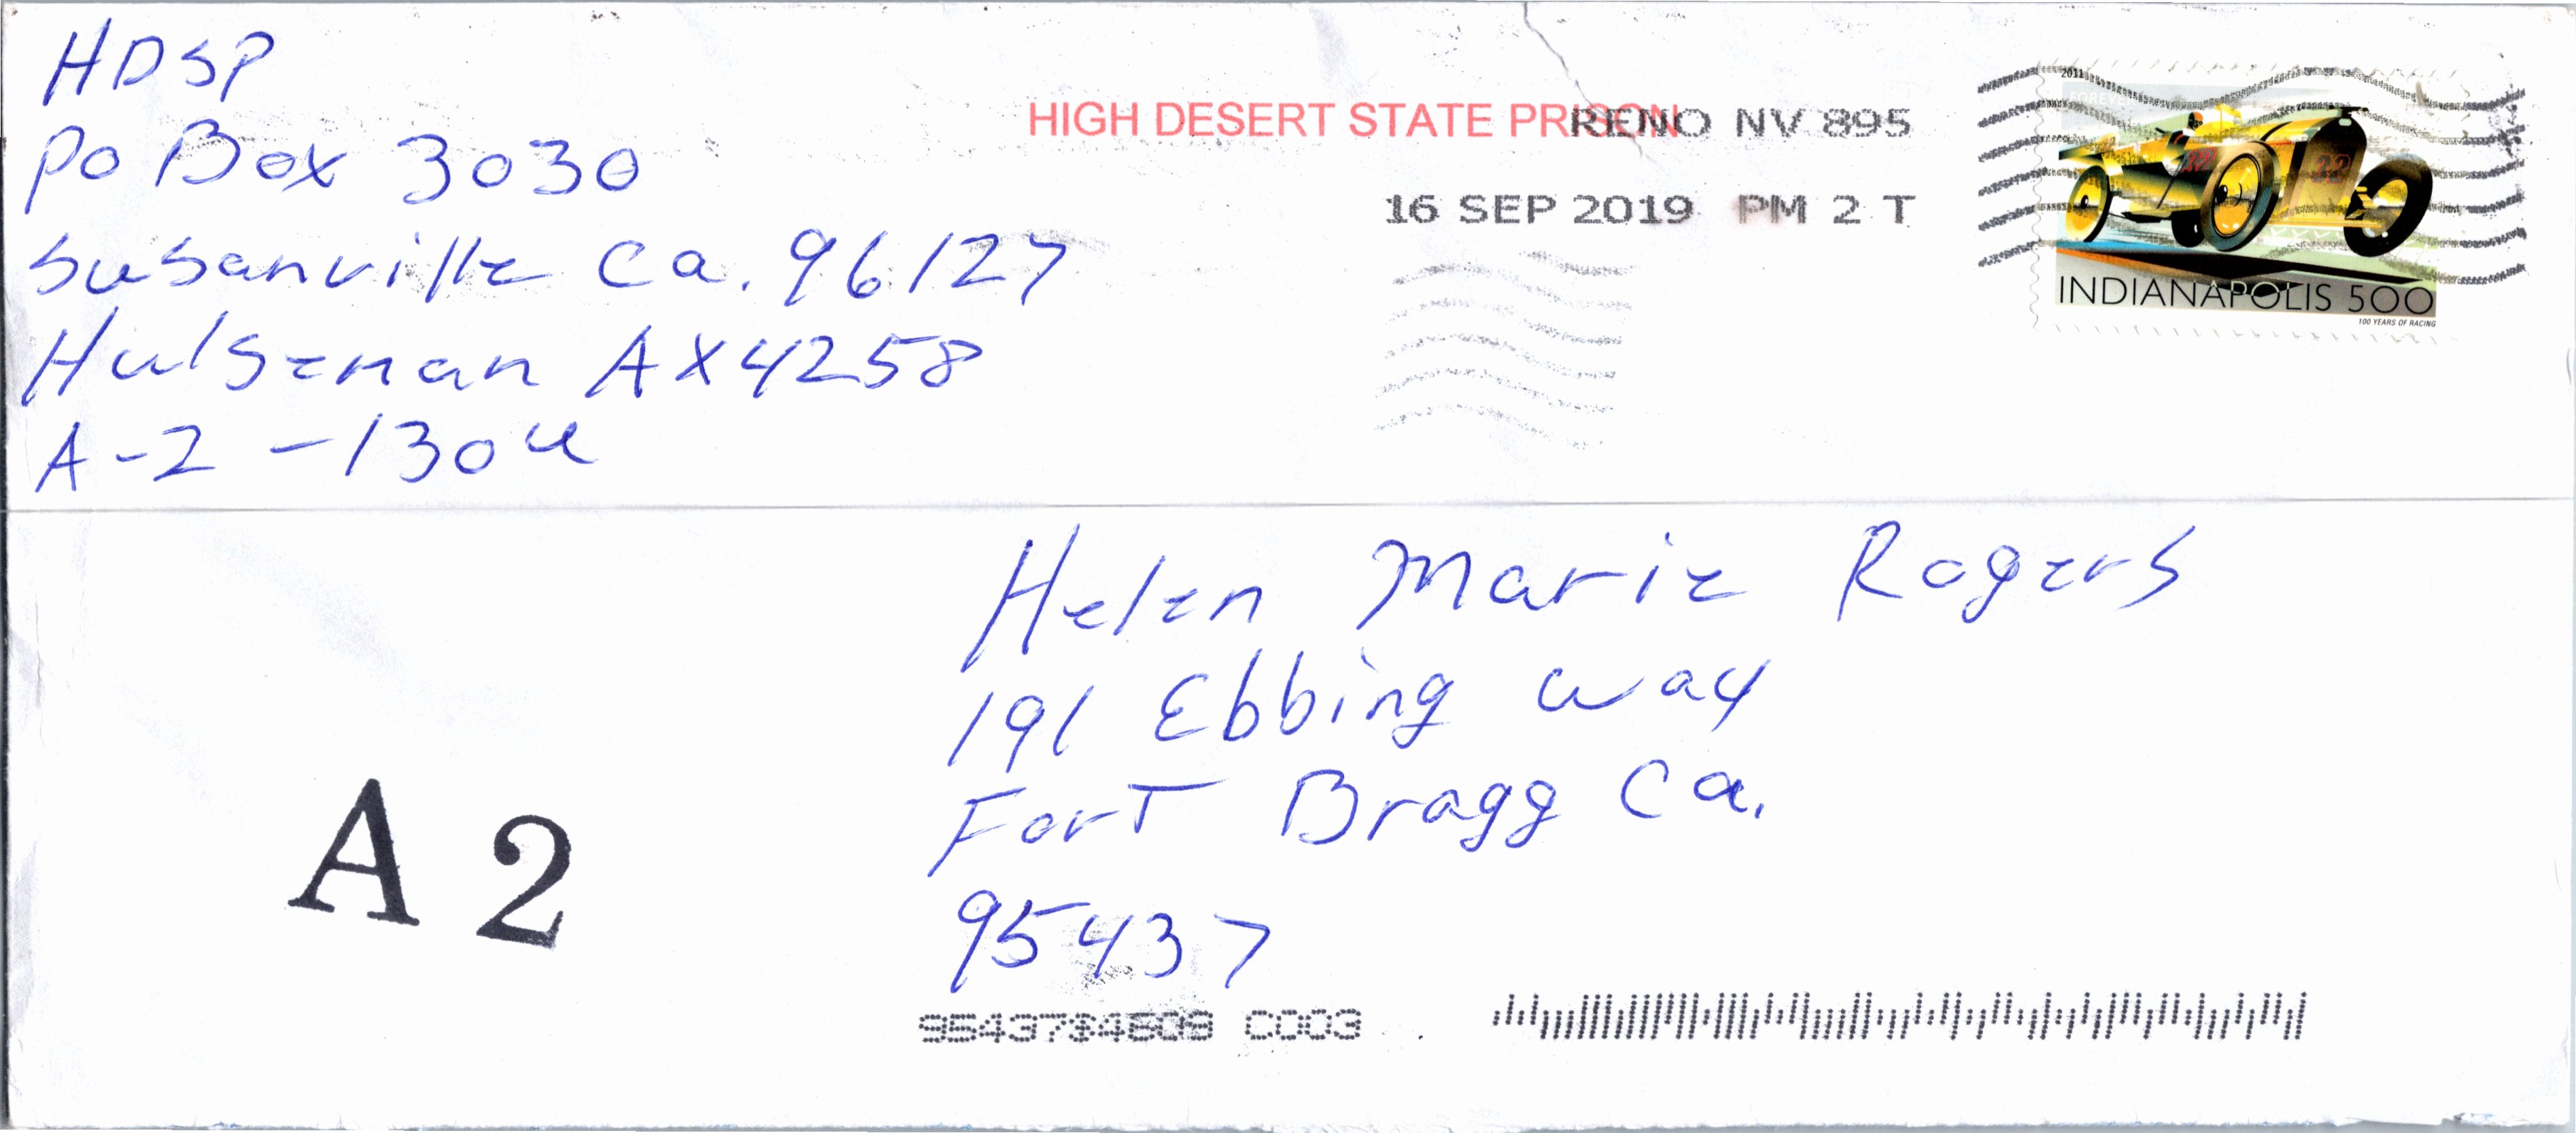 HDSP
Po Box 3030
Susanville Ca. 96127
Hulseman AX4258
A-2 -130u
HIGH DESERT STATE PRISON
RENO NV 895
16 SEP 2019 PM 2 T
2011
FOREVER
INDIANAPOLIS 500
100 YEARS OF RACING
Helen Marie Rogers
191 Ebbing way
Fort Bragg Ca.
95437
A2
C003